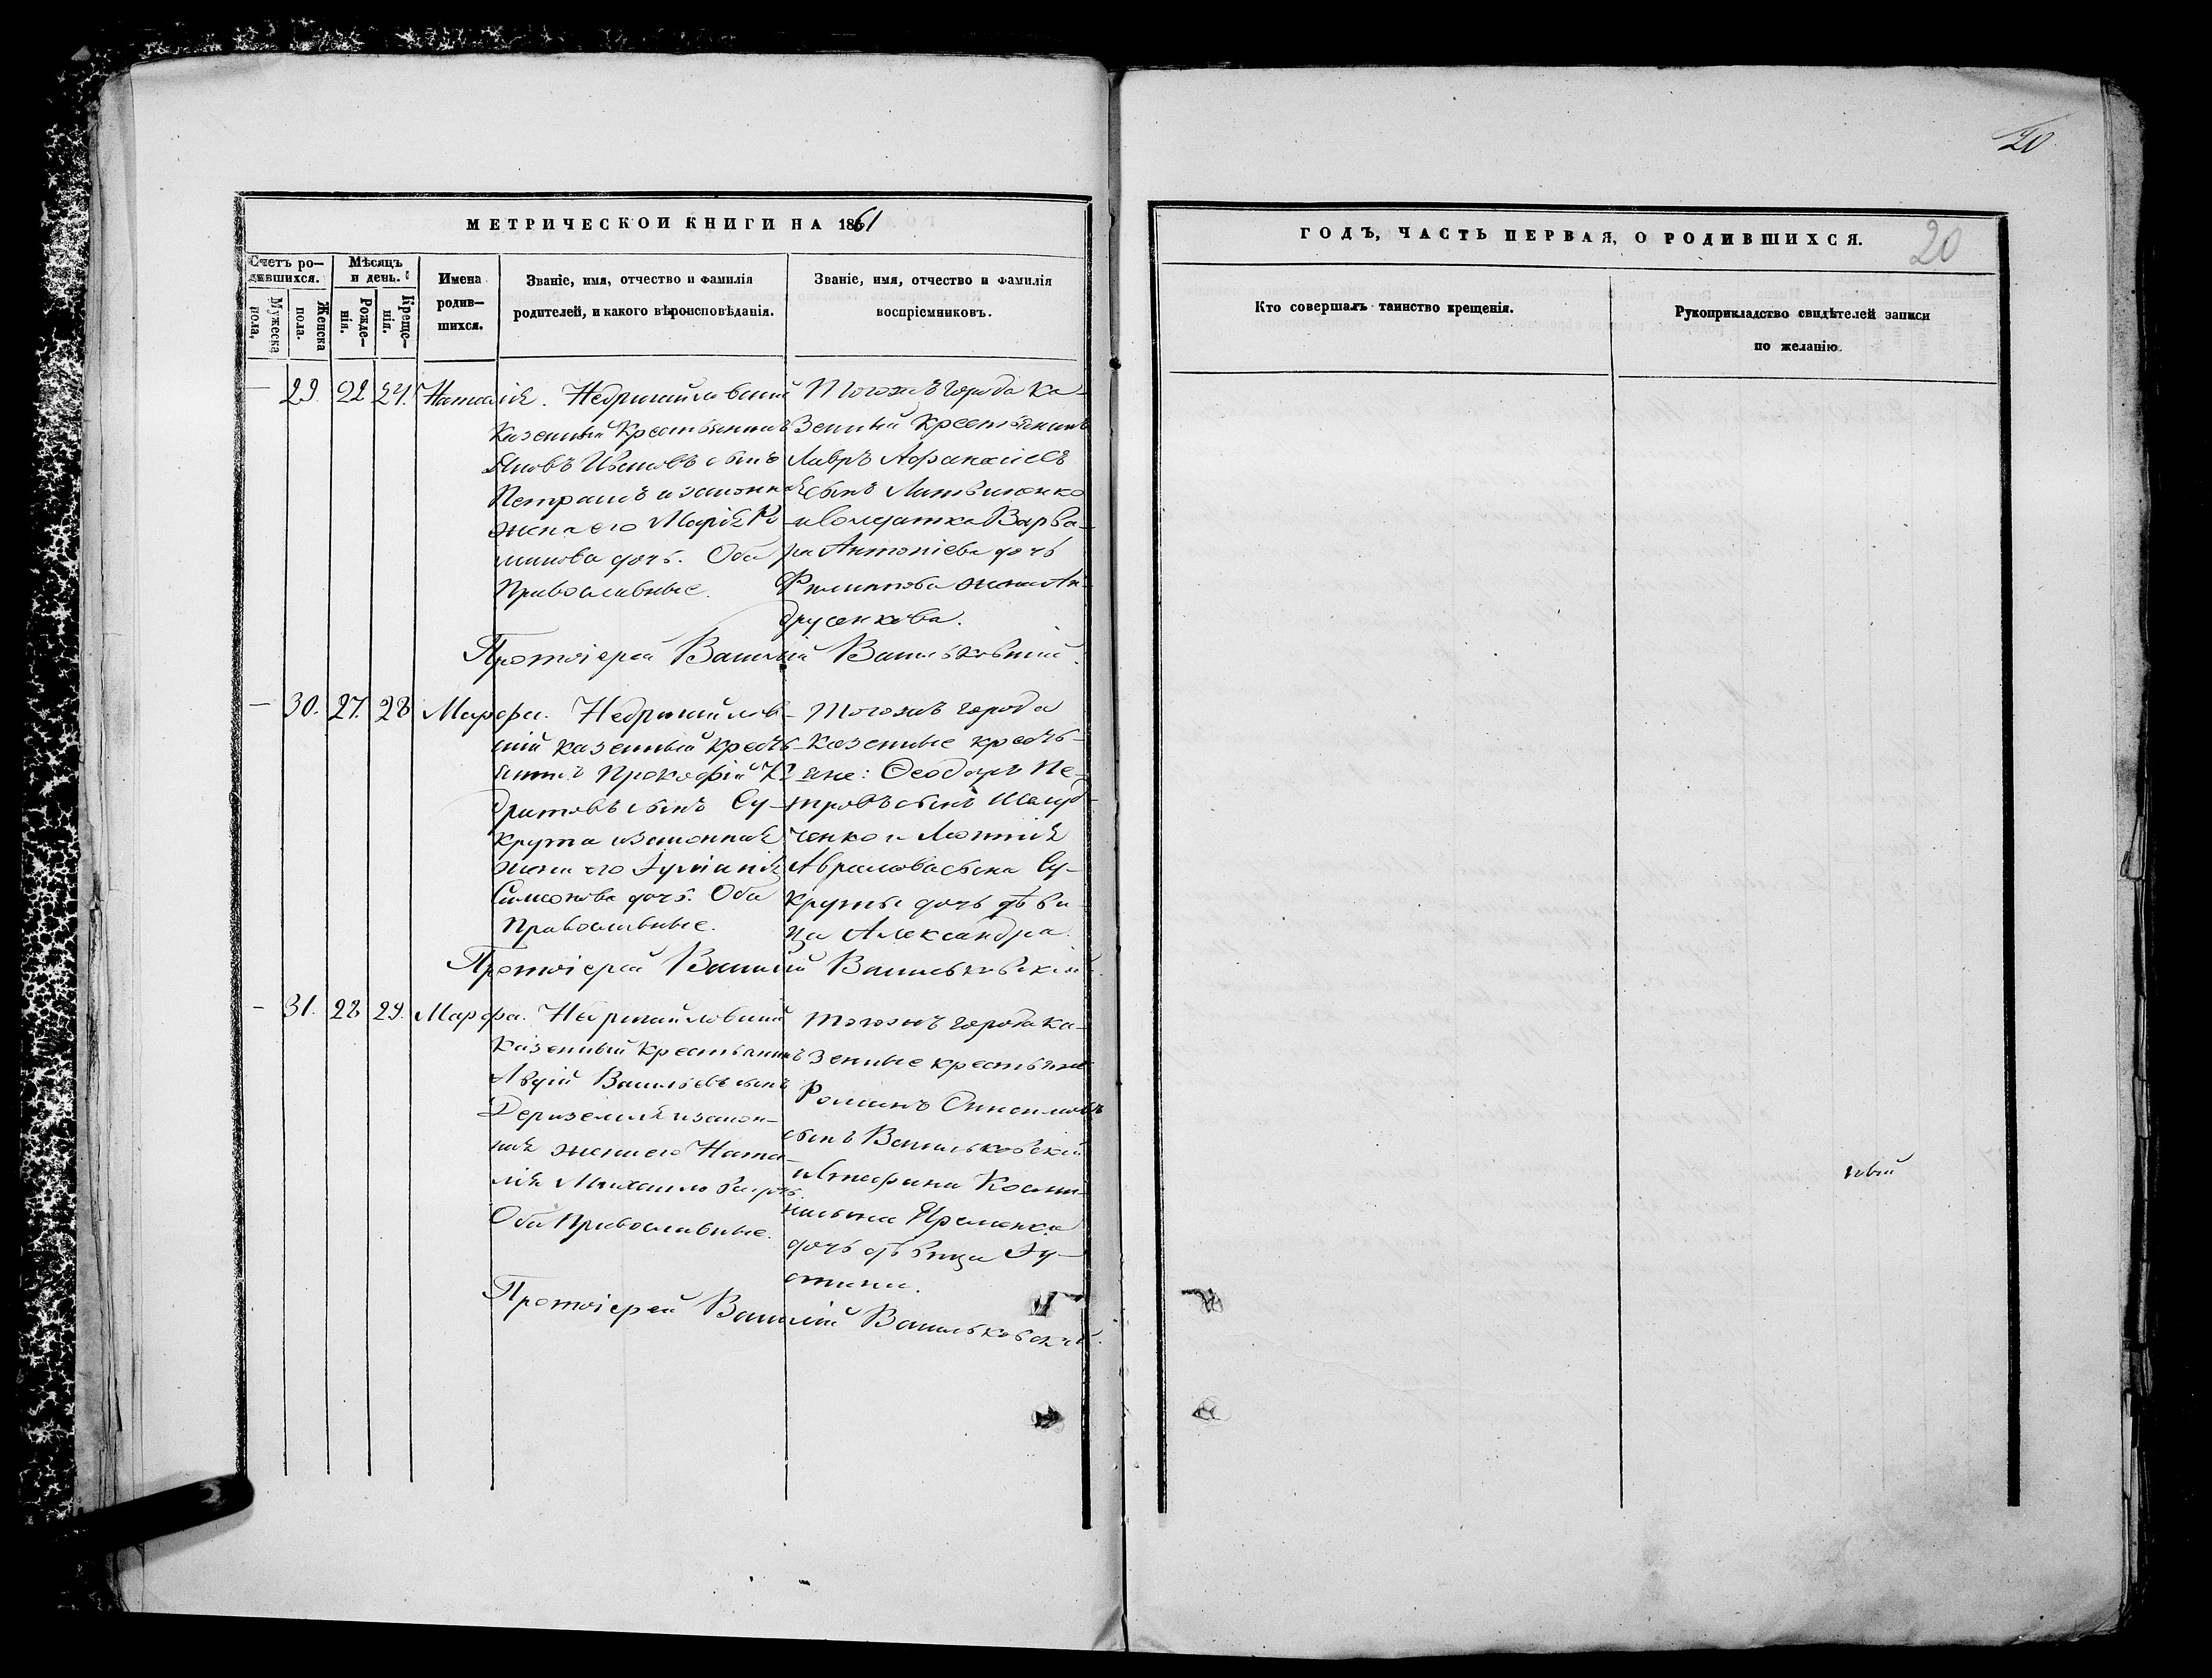 20
МЕТРИЧЕСКОЙ КНИГИ НА 1861
ГОДЪ, ЧАСТЬ ПЕРВАЯ, О РОДИВШИХСЯ.
20
Счетъ ро-
дившихся.
Мужеска
пола,
Женска
пола.
Мѣсяцъ
и день.
Рожде-
нія.
Креще-
нія.
Имена
родив-
шихся.
Званіе, имя, отчество и фамилія
родителей, и какого вѣроисповѣданія.
Званіе, имя, отчество и фамилія
воспріемниковъ.
Кто совершалъ таинство крещенія.
Рукоприкладство свидѣтелей записи
по желанію.
— 29. 22 24. Наталія.
Недригайловскій
Казенный Крестьянинъ
Яковъ Ивановъ сынъ
Петрашъ и законная
жена его Марія
дочь. Оба
Православные.
Тогожъ города Ка-
зенный Крестьянинъ
Лавръ Афанасіевъ
сынъ Литвиненко
и Солдатка Варва-
ра Антоніева дочь
Филиппова жена Ан-
друсенкова.
Протоіерей Василій Васильковскій.
— 30. 27. 28 Марфа.
Недригайлов-
скій казенный кресть-
янинъ Прокофій
сынъ Су-
крута и законная
жена его Іуліанія
Симонова дочь. Оба
Православные.
Тогожъ города
Казенные кресть-
яне: Феодоръ Пе-
тровъ сынъ
и
Аврамова сына Су-
круты дочь дѣви-
ца Александра.
Протоіерей Василій Васильковскій.
— 31. 28 29. Марфа.
Недригайловскій
Казенный Крестьянинъ
Васильевъ сынъ
Дериземля и закон-
ная жена его Ната-
лія Михаилова дочь.
Оба Православные.
Тогожъ города Ка-
зенные крестьяне
Романъ
сынъ Васильковскій
и
дочь дѣвица Іу-
стина.
Протоіерей Василій Васильковскій.